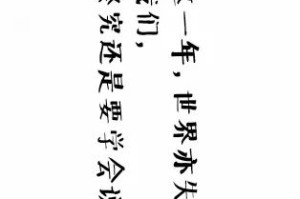 一年，世界亦失
们，
究还是要学会